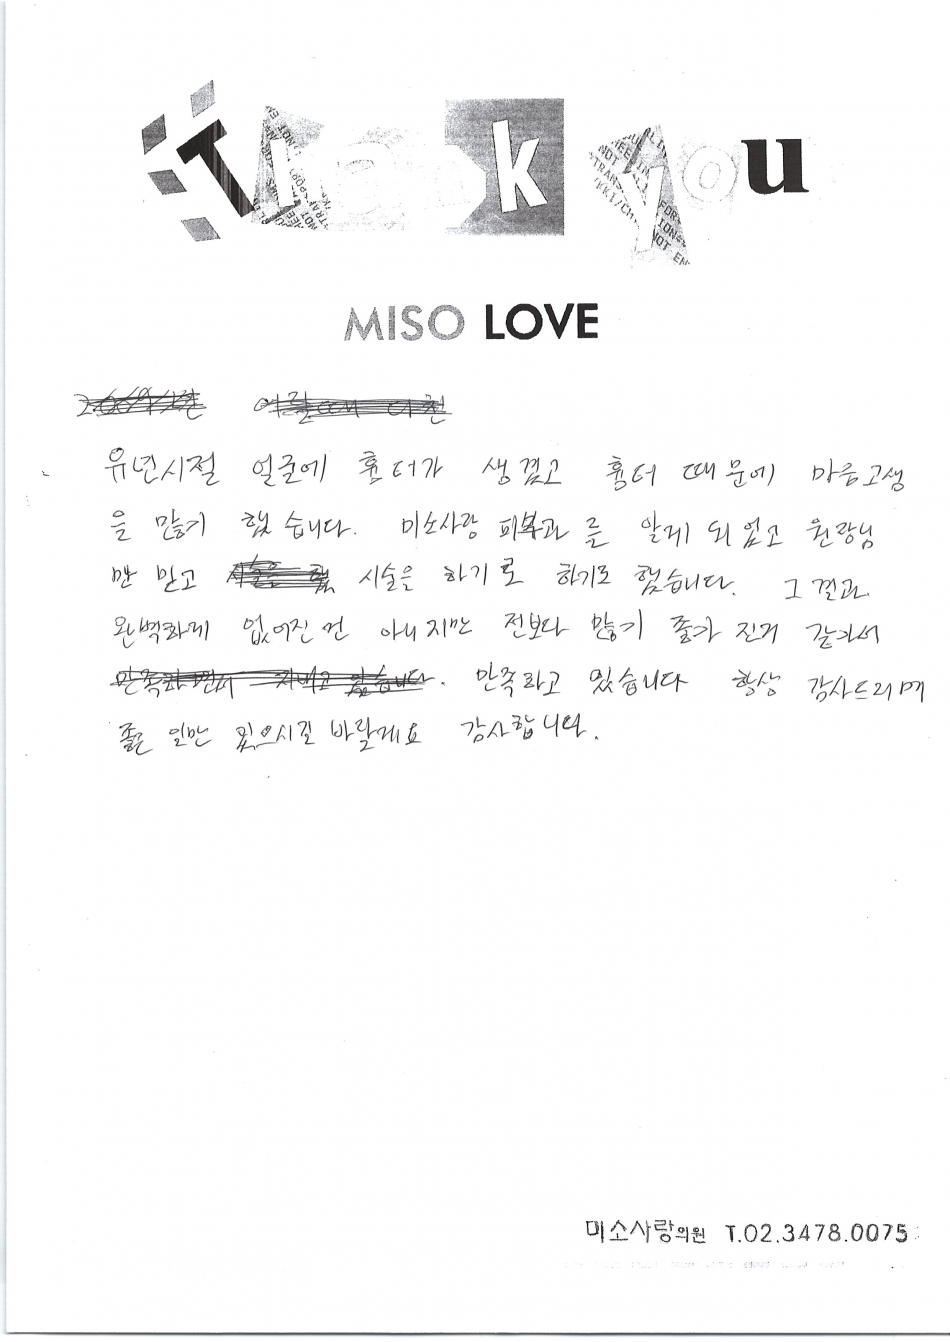 Thank you
MISO LOVE
유년시절 얼굴에 흉터가 생겼고 흉터 때문에 마음고생
을 많기 했습니다. 미소사랑 피부과를 알게 되었고 원장님
만 믿고 시술을 하기로 하기로 했습니다. 그 결과
완벽하게 없어진건 아니지만 전보다 많기 좋가 진거 같가서
만족하고 있습니다 항상 감사드리며
좋은 일만 있으시길 바랄게요 감사합니다.
미소사랑의원 T.02.3478.0075